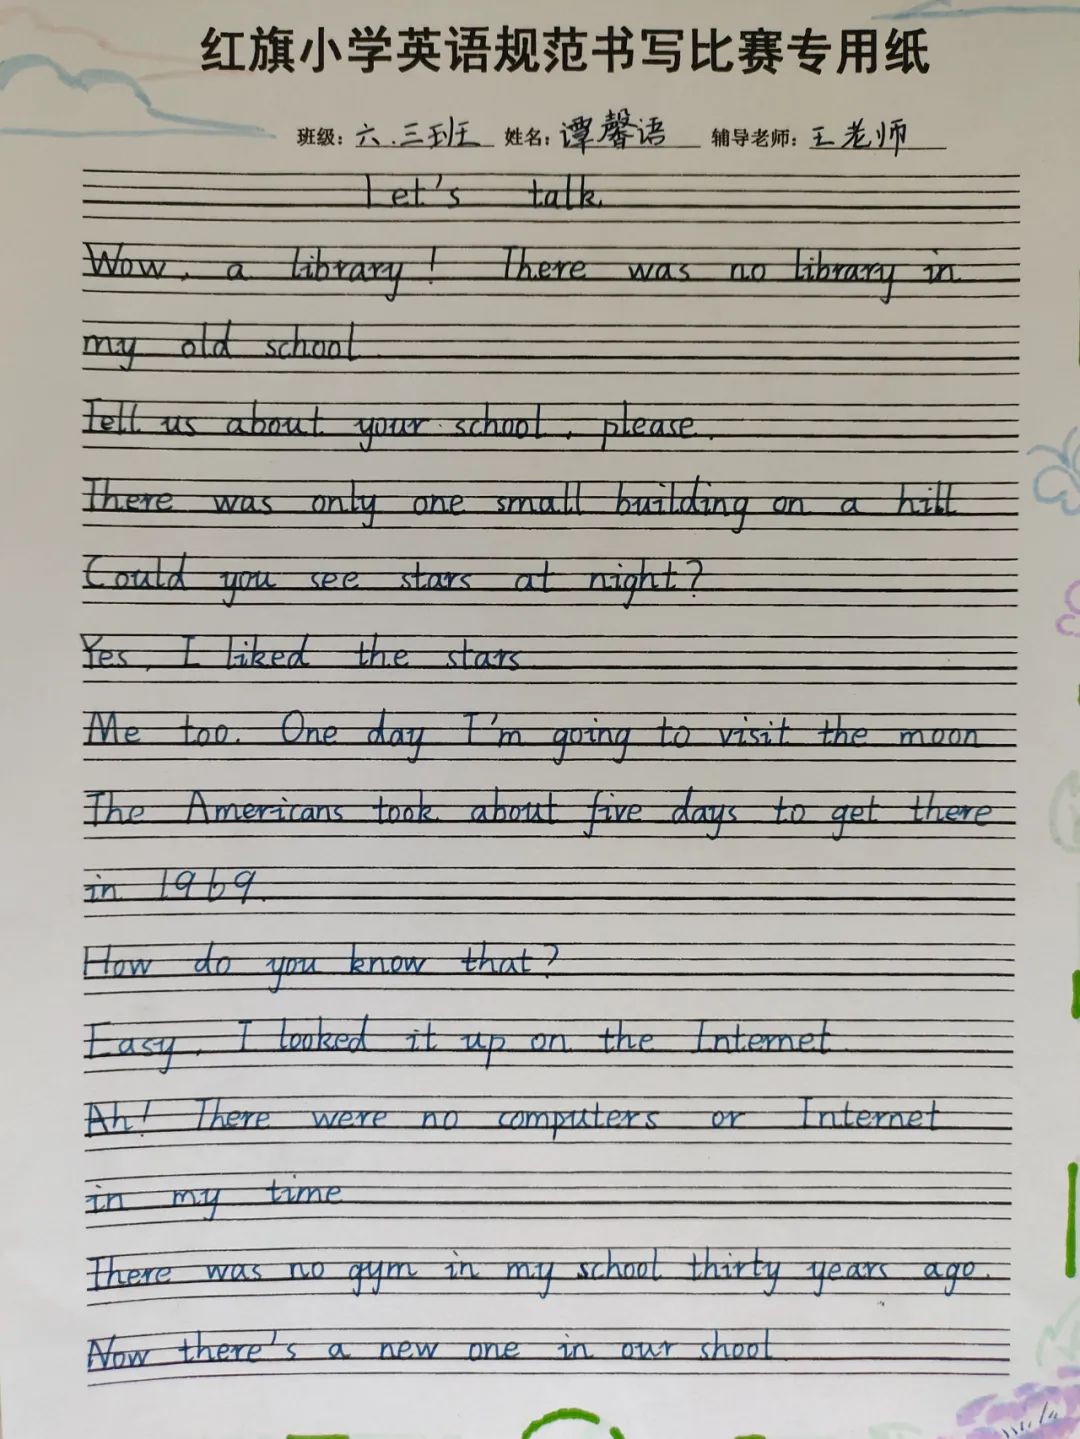 红旗小学英语规范书写比赛专用纸
班级：六.三班 姓名：谭馨语 辅导老师：王老师
Let's talk.
Wow, a library! There was no library in
my old school.
Tell us about your school, please.
There was only one small building on a hill
Could you see stars at night?
Yes, I liked the stars
Me too. One day I'm going to visit the moon
The Americans took about five days to get there
in 1969.
How do you know that?
Easy, I looked it up on the Internet.
Ah! There were no computers or Internet
in my time
There was no gym in my school thirty years ago.
Now there's a new one in our shool.